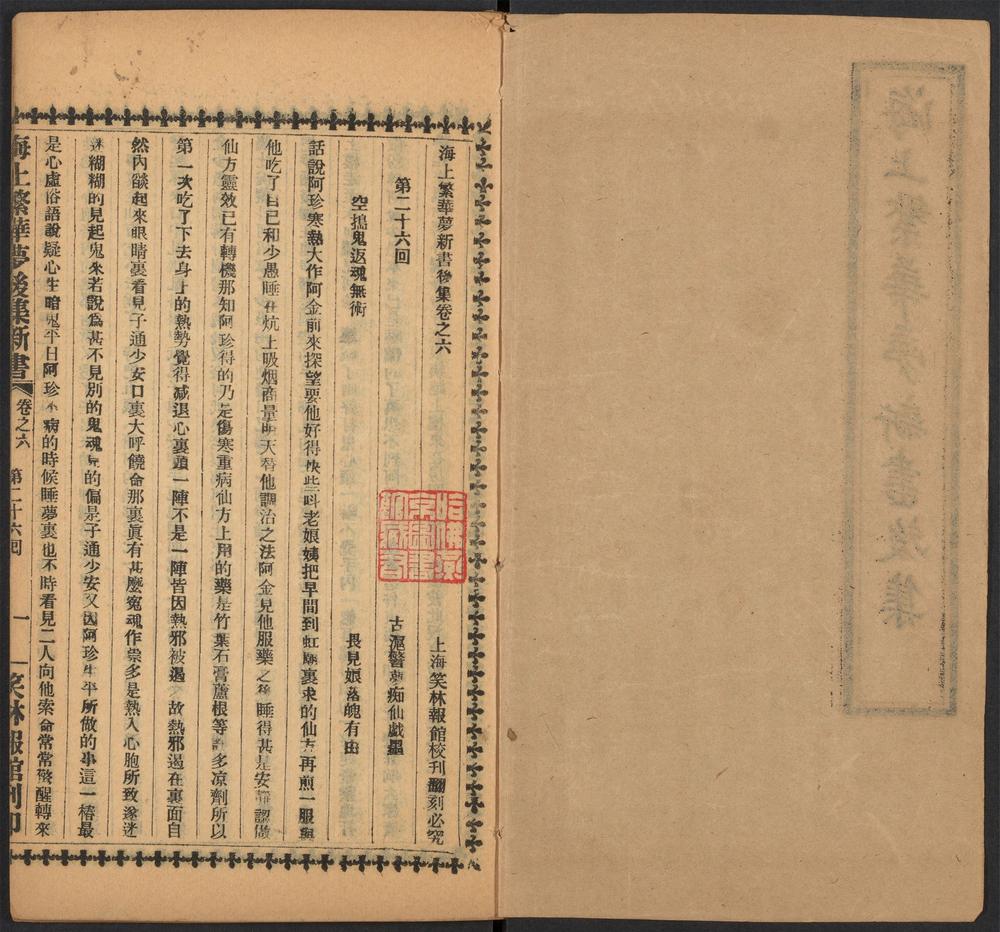 海上繁華夢新書後集卷之六
上海笑林報館校刊翻刻必究
第二十六回
古滬警夢痴仙戲墨
空搗鬼返魂無術
長見娘落魄有由
話說阿珍寒熱大作阿金前來探望要他好得快些叫老娘姨把早間到虹廟裏求的仙方再煎一服與
他吃了自已和少愚睡在炕上吸烟商量明天替他調治之法阿金見他服藥之後睡得甚是安靜認做
仙方靈效已有轉機那知阿珍得的乃是傷寒重病仙方上用的藥是竹葉石膏蘆根等許多凉劑所以
第一次吃了下去身上的熱勢覺得减退心裏頭一陣不是一陣皆因熱邪被遏故熱邪遏在裏面自
然內燄起來眼睛裏看見子通少安口裏大呼饒命那裏眞有甚麽寃魂作祟多是熱入心胞所致遂迷
迷糊糊的見起鬼來若說爲甚不見別的鬼魂見的偏是子通少安又因阿珍生平所做的事這一樁最
是心虛俗語說疑心生暗鬼平日阿珍不病的時候睡夢裏也不時看見二人向他索命常常驚醒轉來
海上繁華夢後集新書
卷之六
第二十六回
一
笑林報館刊印
哈佛燕京圖書館